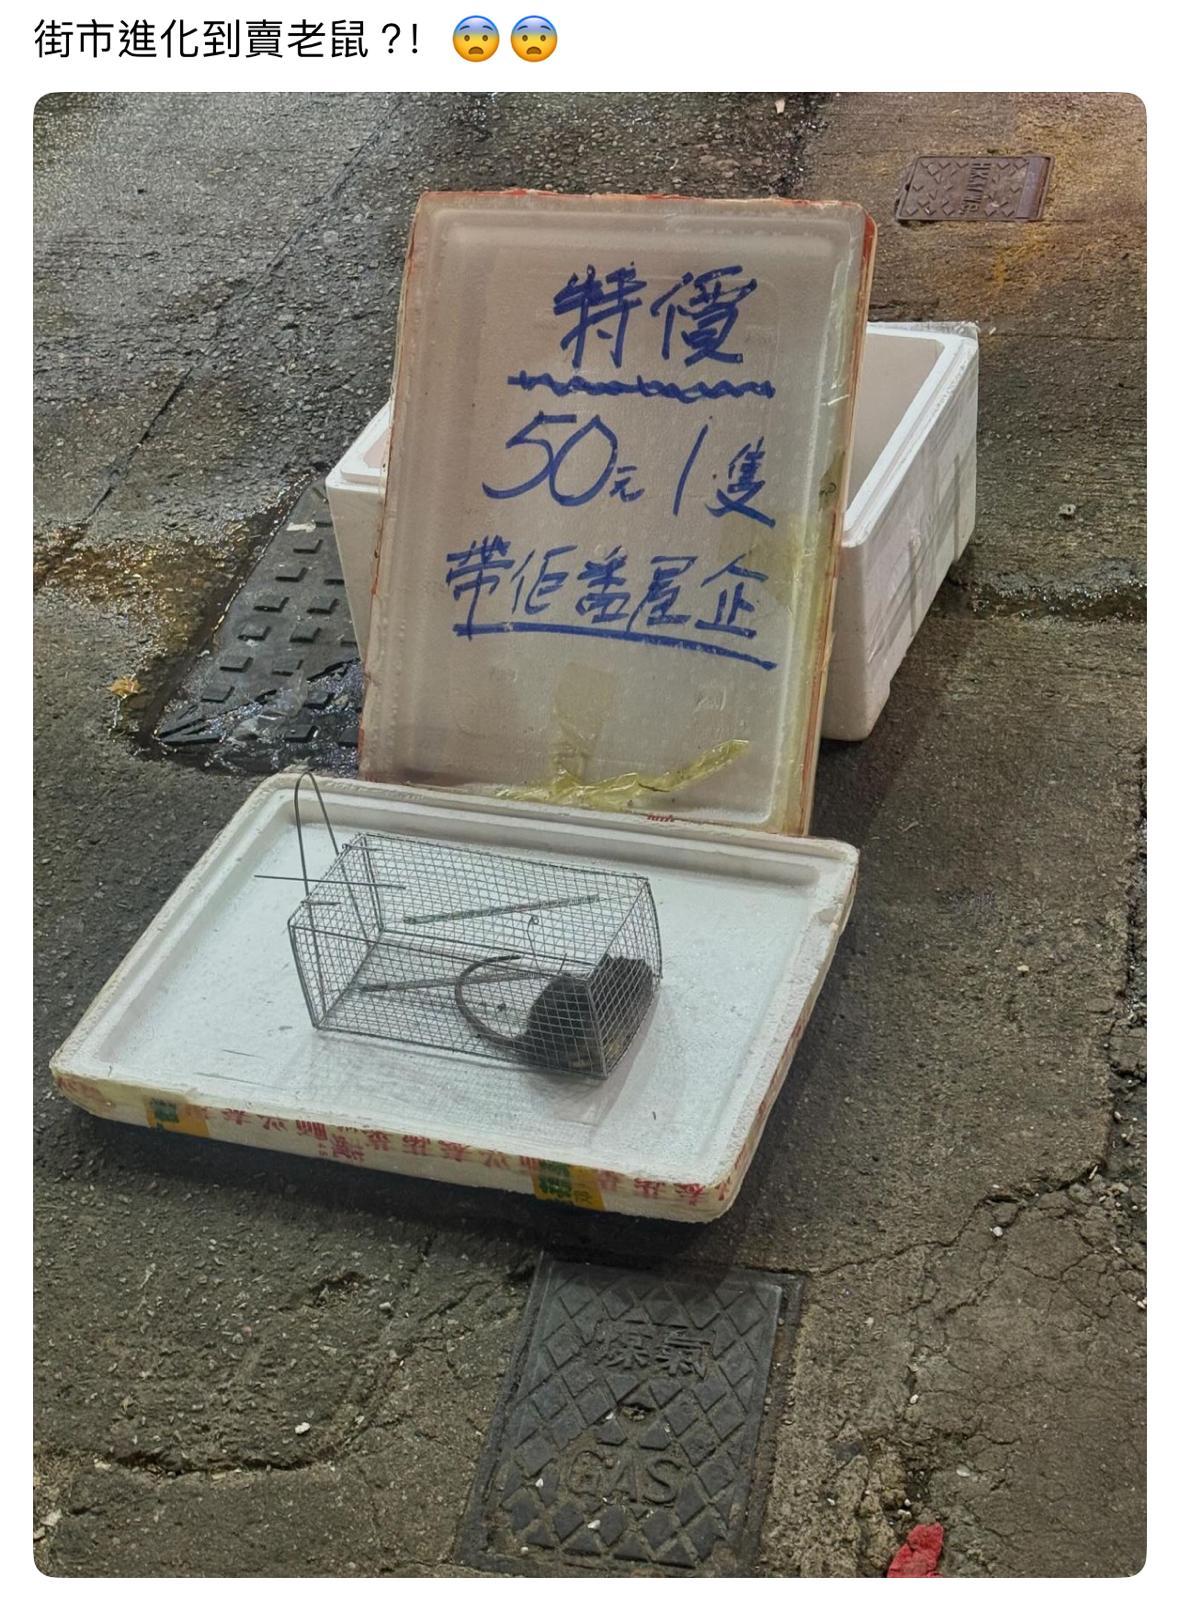 街市進化到賣老鼠？！😨😨
特價
50元1隻
帶佢番屋企
煤氣
GAS